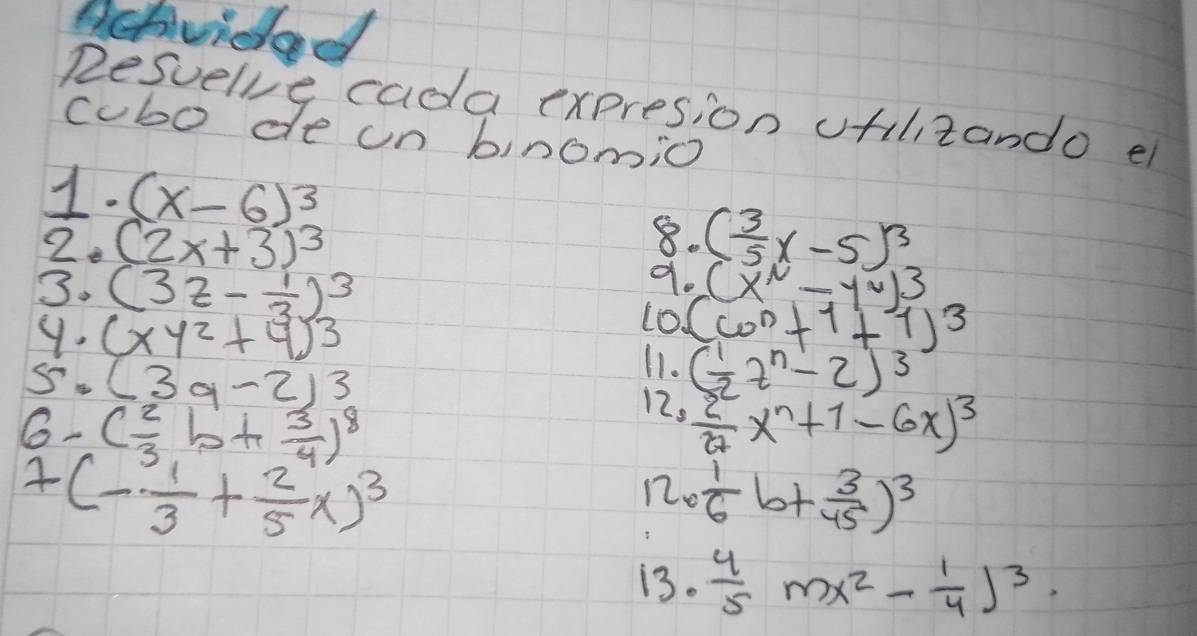 Actividad
Resuelve cada expresion utilizando el
cubo de un binomio
1. (x - 6)³
2. (2x + 3)³
3. (3z - 1/3)³
4. (xy² + 4)³
5. (3a - 2)3
6 - (2/3 b + 3/4)⁸
7 (- 1/3 + 2/5 x)³
8. (3/5 x - 5)³
9. (xⁿ - yⁿ)3
10. (coⁿ + 1 + 1)³
11. (1/2 zⁿ - 2)³
12. 2/27 xⁿ + 1 - 6x)³
12. 1/6 b + 3/45)³
13. 4/5 mx² - 1/4)³.